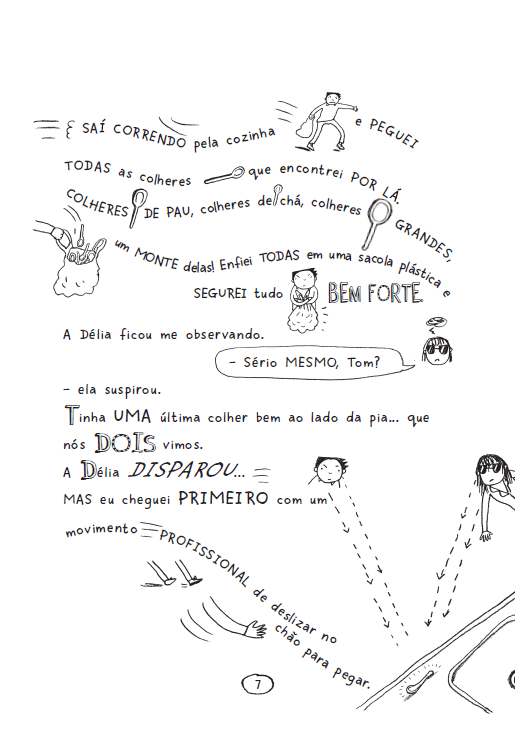 E SAÍ CORRENDO pela cozinha e PEGUEI
TODAS as colheres que encontrei POR LÁ.
COLHERES DE PAU, colheres de chá, colheres GRANDES,
um MONTE delas! Enfiei TODAS em uma sacola plástica e
SEGUREI tudo BEM FORTE
A Délia ficou me observando.
– Sério MESMO, Tom?
– ela suspirou.
Tinha UMA última colher bem ao lado da pia... que
nós DOIS vimos.
A Délia DISPAROU...
MAS eu cheguei PRIMEIRO com um
movimento PROFISSIONAL de deslizar no
chão para pegar.
7